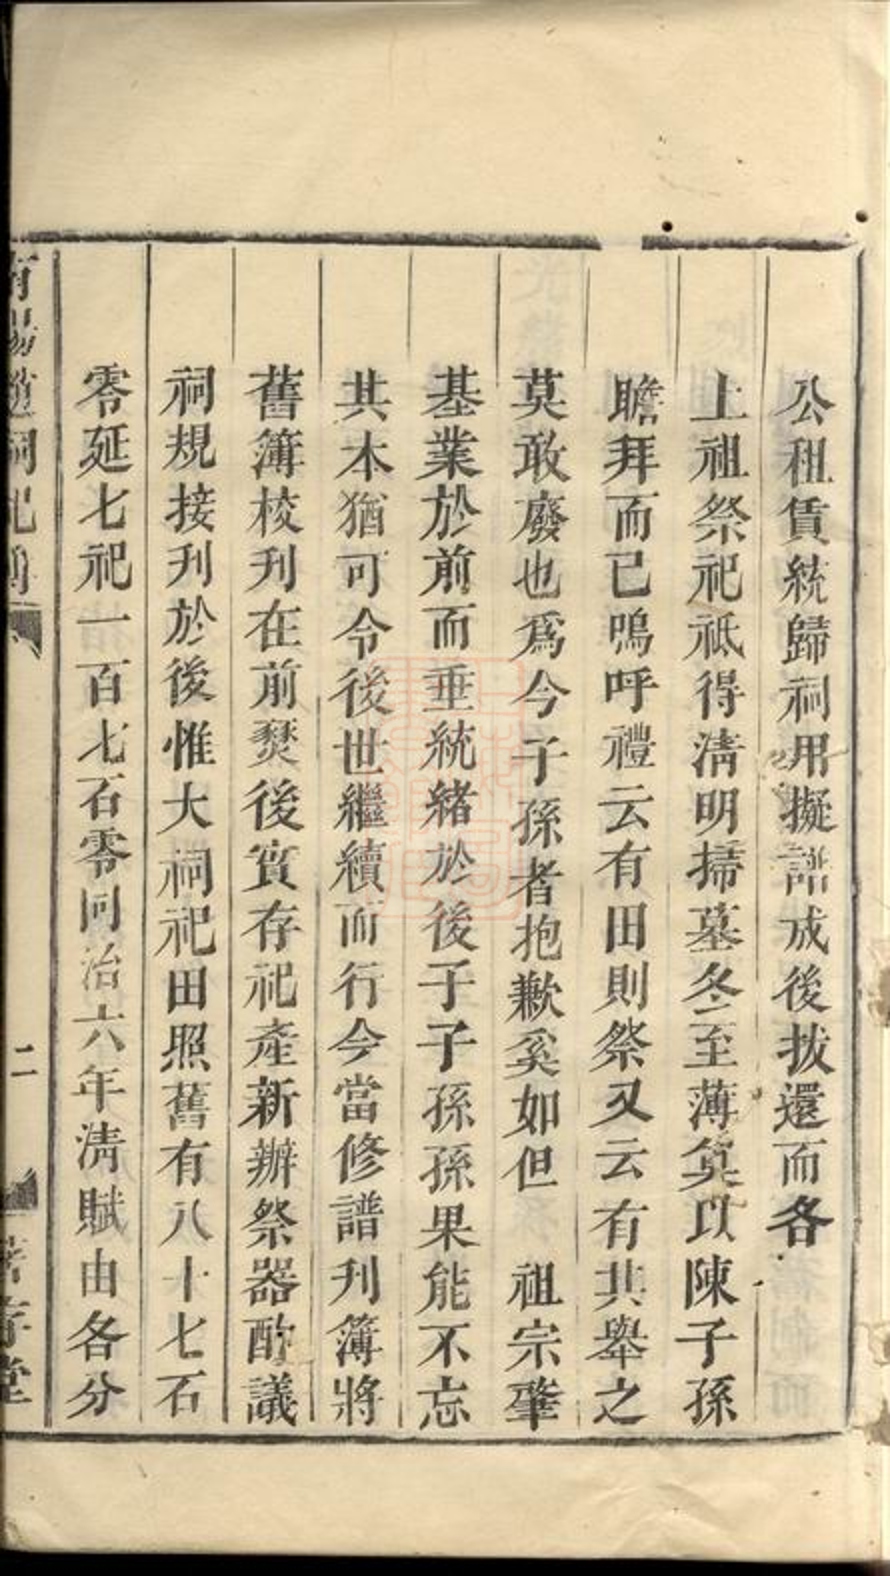 公租賃統歸祠用擬譜成後拔還而各
上祖祭祀祗得淸明掃墓冬至薄奠以陳子孫
瞻拜而已嗚呼禮云有田則祭又云有其舉之
莫敢廢也爲今子孫者抱歉奚如但　祖宗肇
基業於前而垂統緒於後子子孫孫果能不忘
其本猶可令後世繼續而行今當修譜刋簿將
舊簿校刋在前燹後實存祀產新辦祭器酌議
祠規接刋於後惟大祠祀田照舊有八十七石
零延七祀一百七石零同治六年淸賦由各分
二